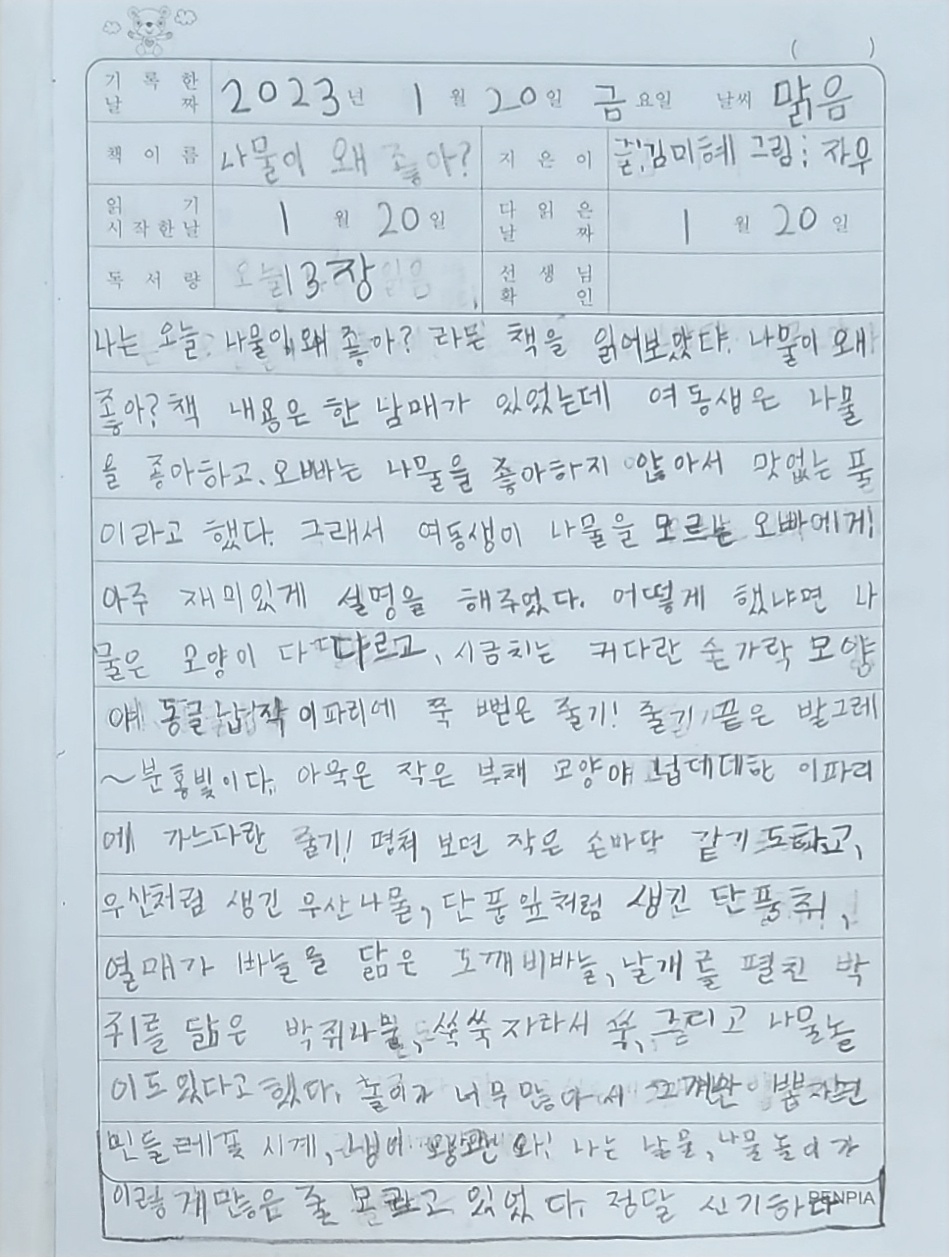 ( )
기록한 날짜 2023년 1월 20일 금요일 날씨 맑음
책이름 나물이 왜 좋아? 지은이 글;김미혜 그림; 자우
읽기 시작한날 1월 20일 다 읽은 날짜 1월 20일
독서량 오늘 13장 읽음 선생님 확인
나는 오늘 나물이 왜 좋아? 라는 책을 읽어보았다. 나물이 왜
좋아? 책 내용은 한 남매가 있었는데 여동생은 나물
을 좋아하고, 오빠는 나물을 좋아하지 않아서 맛없는 풀
이라고 했다. 그래서 여동생이 나물을 모르는 오빠에게
아주 재미있게 설명을 해주었다. 어떻게 했냐면 나
물은 모양이 다 다르고, 시금치는 커다란 숟가락 모양
야 동글납작 이파리에 쭉 뻗은 줄기! 줄기 끝은 발그레
~분홍빛이다. 아욱은 작은 부채 모양야 넙데데한 이파리
에 가느다란 줄기! 펼쳐 보면 작은 손바닥 같기도하고,
우산처럼 생긴 우산나물, 단풍잎처럼 생긴 단풍취,
열매가 바늘을 닮은 도깨비바늘, 날개를 펼친 박
쥐를 닮은 박쥐나물, 쑥쑥 자라서 쑥, 그리고 나물놀
이도 있다고 했다. 놀이가 너무 많아서
민들레꽃 시계, 와! 나는 나물, 나물놀이가
이렇게 많은 줄 모르고 있었다. 정말 신기하다
PENPIA